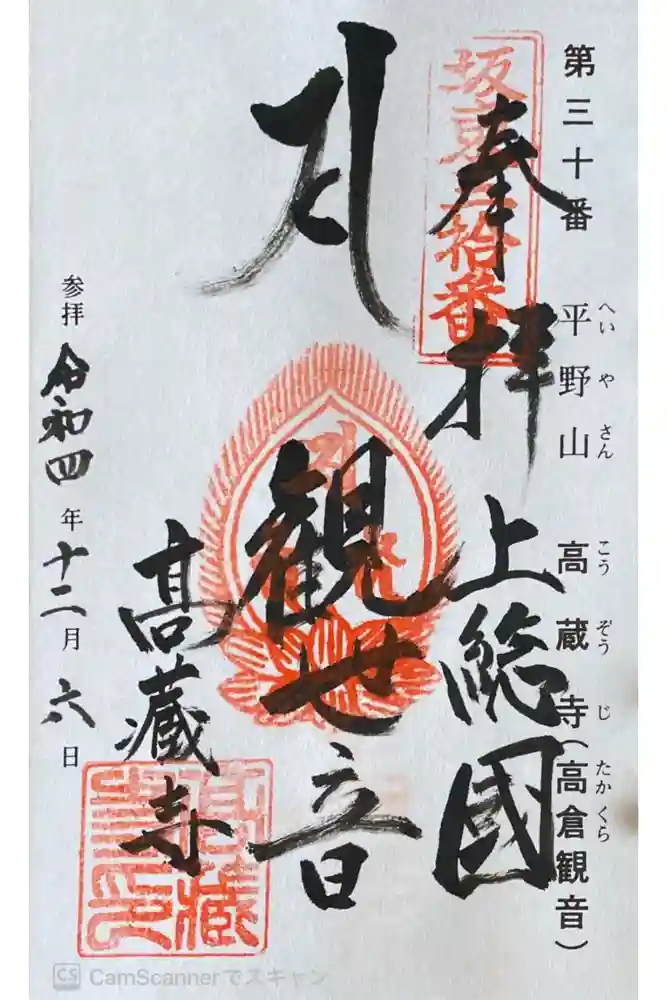 第三十番 平野山 高蔵寺(高倉観音)
へいやさん
こうぞうじ
たかくら
奉拝 上総國
坂東三拾番
観世音
髙藏寺
参拝 令和四年十二月六日
CS CamScannerでスキャン